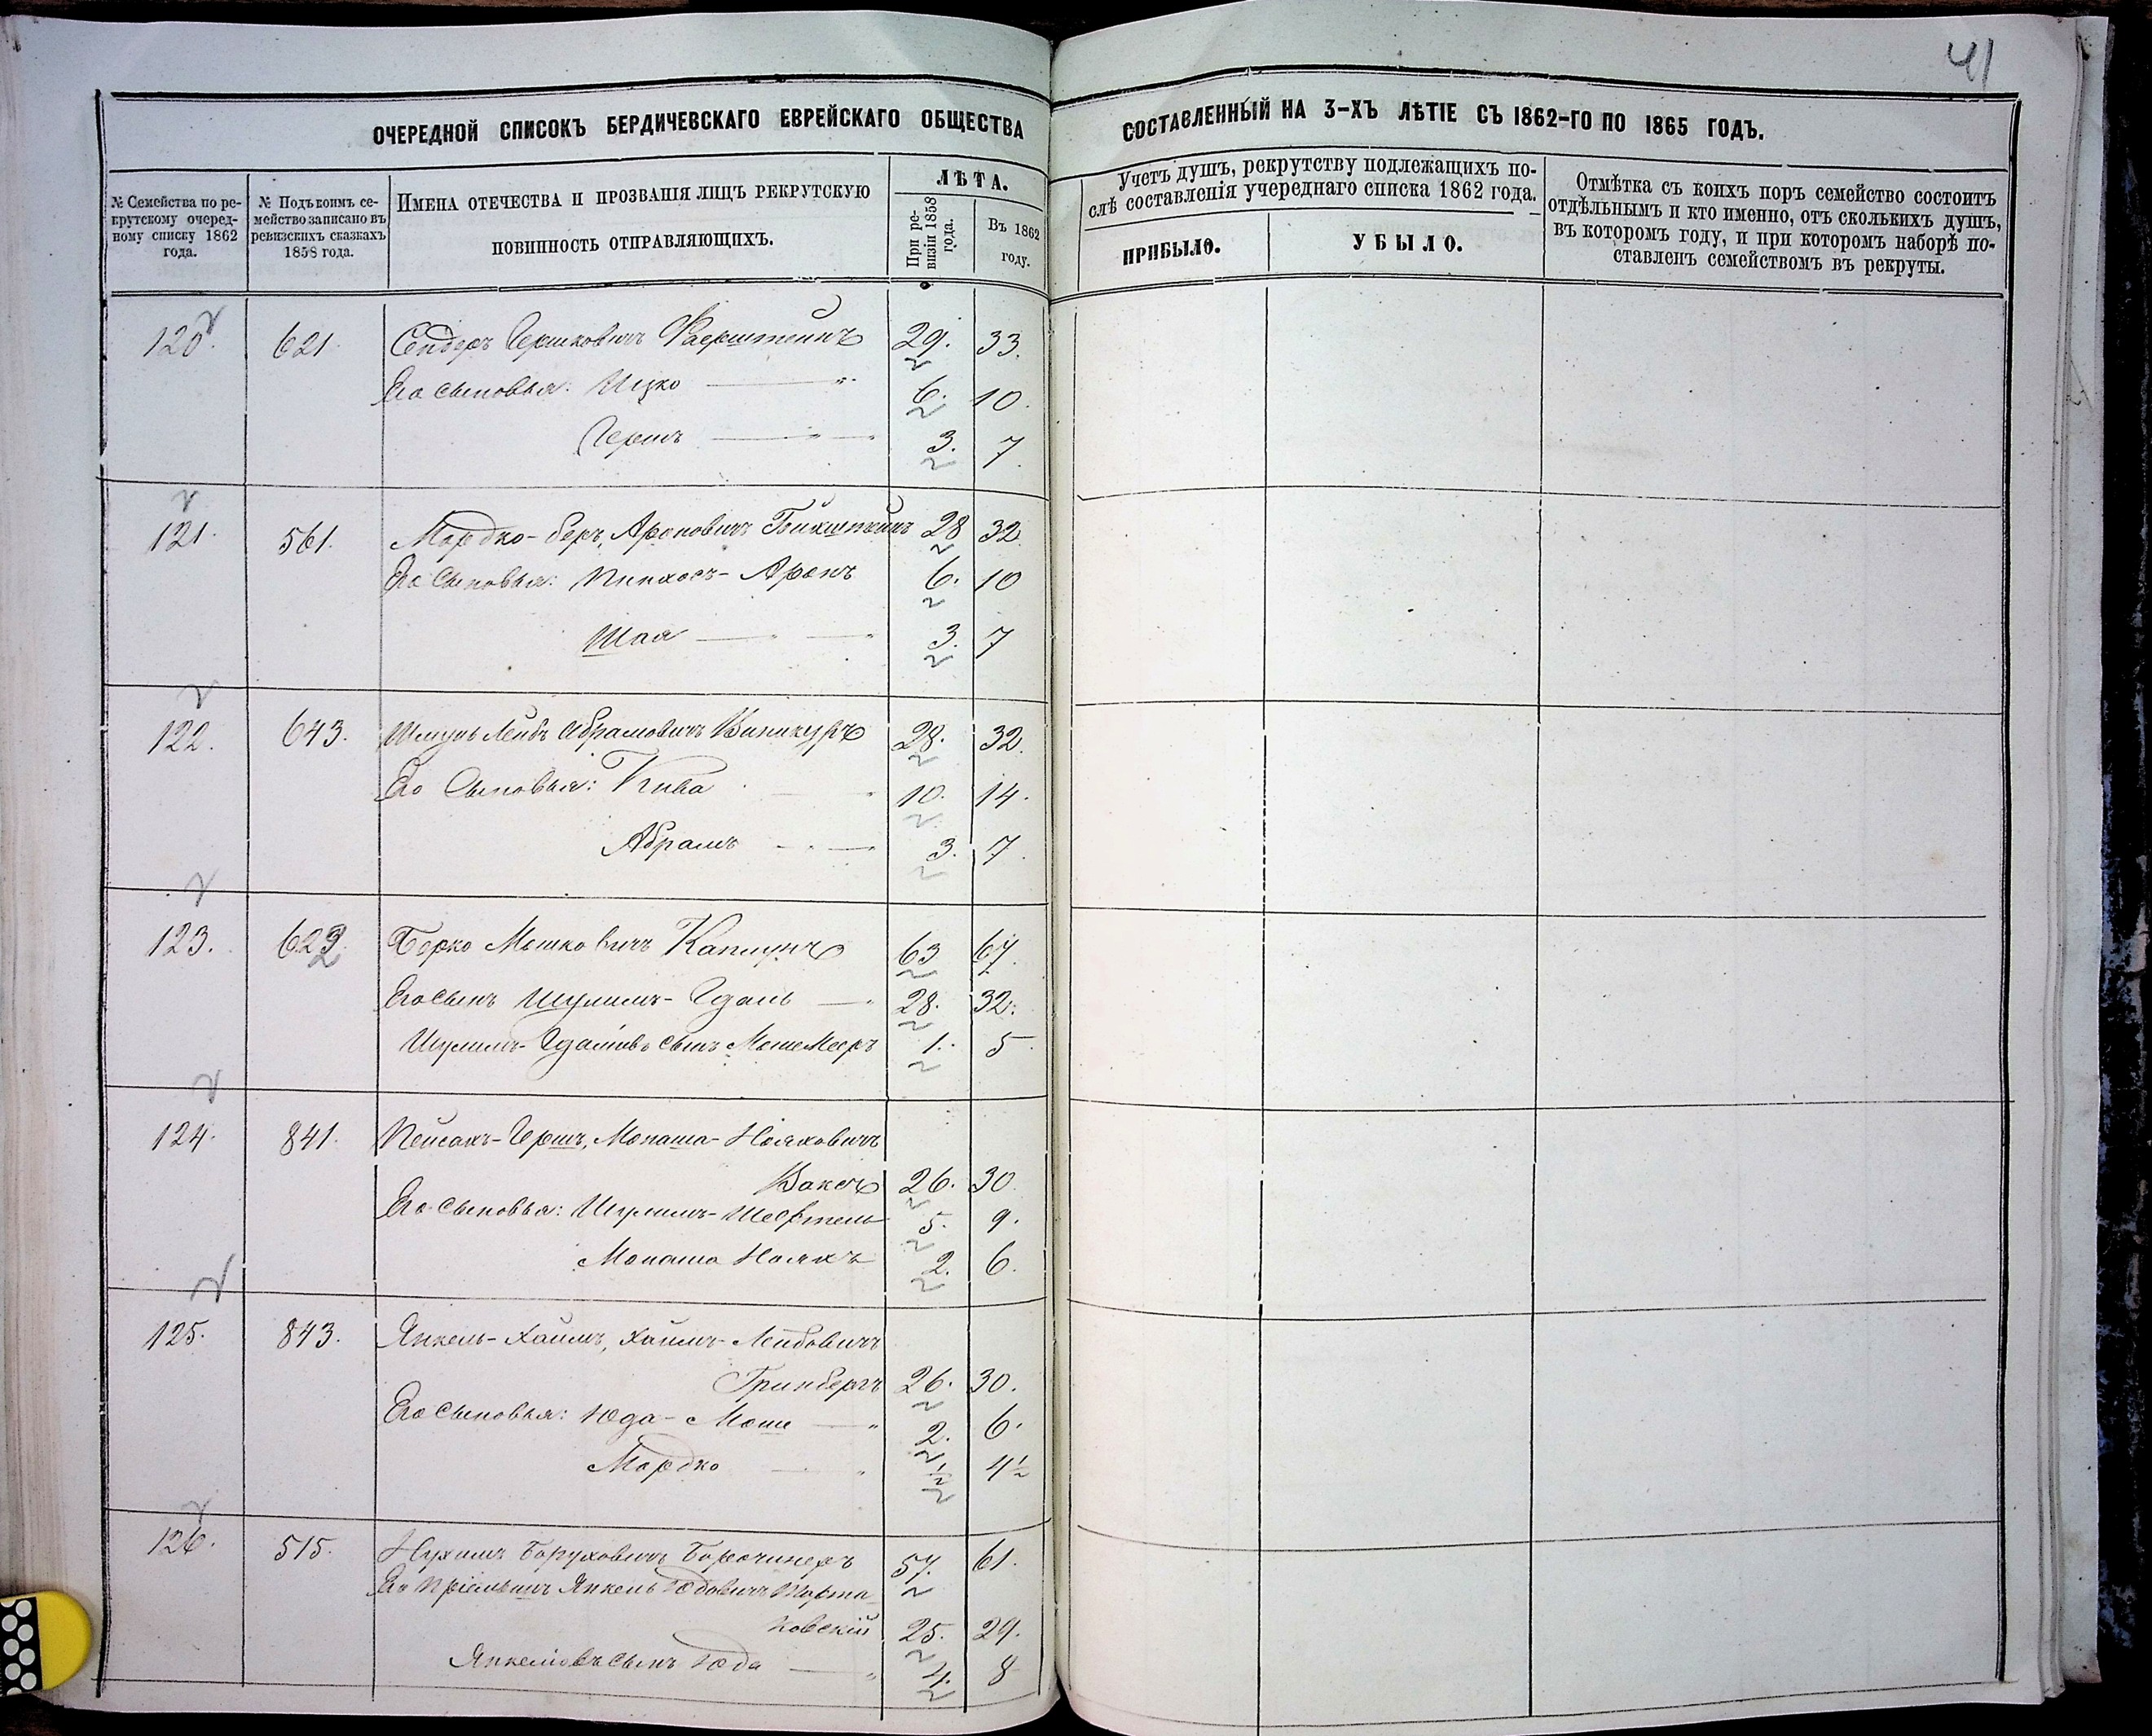 41
ОЧЕРЕДНОЙ СПИСОКЪ БЕРДИЧЕВСКАГО ЕВРЕЙСКАГО ОБЩЕСТВА
СОСТАВЛЕННЫЙ НА 3-ХЪ ЛѢТІЕ СЪ 1862-ГО ПО 1865 ГОДЪ.
№ Семейства по ре-
крутскому очеред-
ному списку 1862
года.
№ Подъ коимъ се-
мейство записано въ
ревизскихъ сказкахъ
1858 года.
ИМЕНА ОТЕЧЕСТВА И ПРОЗВАНІЯ ЛИЦЪ РЕКРУТСКУЮ
ПОВИННОСТЬ ОТПРАВЛЯЮЩИХЪ.
ЛѢТА.
При ре-
визіи 1858
года.
Въ 1862
году.
Учетъ душъ, рекрутству подлежащихъ по-
слѣ составленія учереднаго списка 1862 года.
ПРИБЫЛО.
УБЫЛО.
Отмѣтка съ коихъ поръ семейство состоитъ
отдѣльнымъ и кто именно, отъ сколькихъ душъ,
въ которомъ году, и при которомъ наборѣ по-
ставленъ семействомъ въ рекруты.
120. 621. Сендеръ Гершковичъ Фаерштейнъ 29. 33.
Его сыновья: Ицко 6. 10.
Гершъ 3. 7.
121. 561. Мордко-Беръ, Ароновичъ 28 32.
Его сыновья: Пинхосъ-Аронъ 6. 10
Шая 3. 7
122. 643. Шмуль Лейбъ Абрамовичъ Винокуръ 28. 32.
Его сыновья: Кива 10. 14.
Абрамъ 3. 7.
123. 622 Берко Мошковичъ Каплунъ 63 67.
Его сынъ Шулимъ-Гдаль 28. 32.
Шулимъ-Гдаліовъ сынъ Моше Мееръ 1. 5.
124. 841. Пейсахъ-Гершъ, Монаша-Нояховичъ
Ваксъ 26. 30.
Его сыновья: Шулимъ-Шефтель 5. 9.
Монаша Нояхъ 2. 6.
125. 843. Янкель-Хаимъ, Хаимъ-Лейбовичъ
Гринбергъ 26. 30.
Его сыновья: Юда-Моше 2. 6.
Мордко ½ 4½
126. 515. Нухимъ Боруховичъ 57. 61.
Его пріемышъ Янкель Юдовичъ Порта-
ковскій 25. 29.
Янкеліовъ сынъ Юда 4. 8